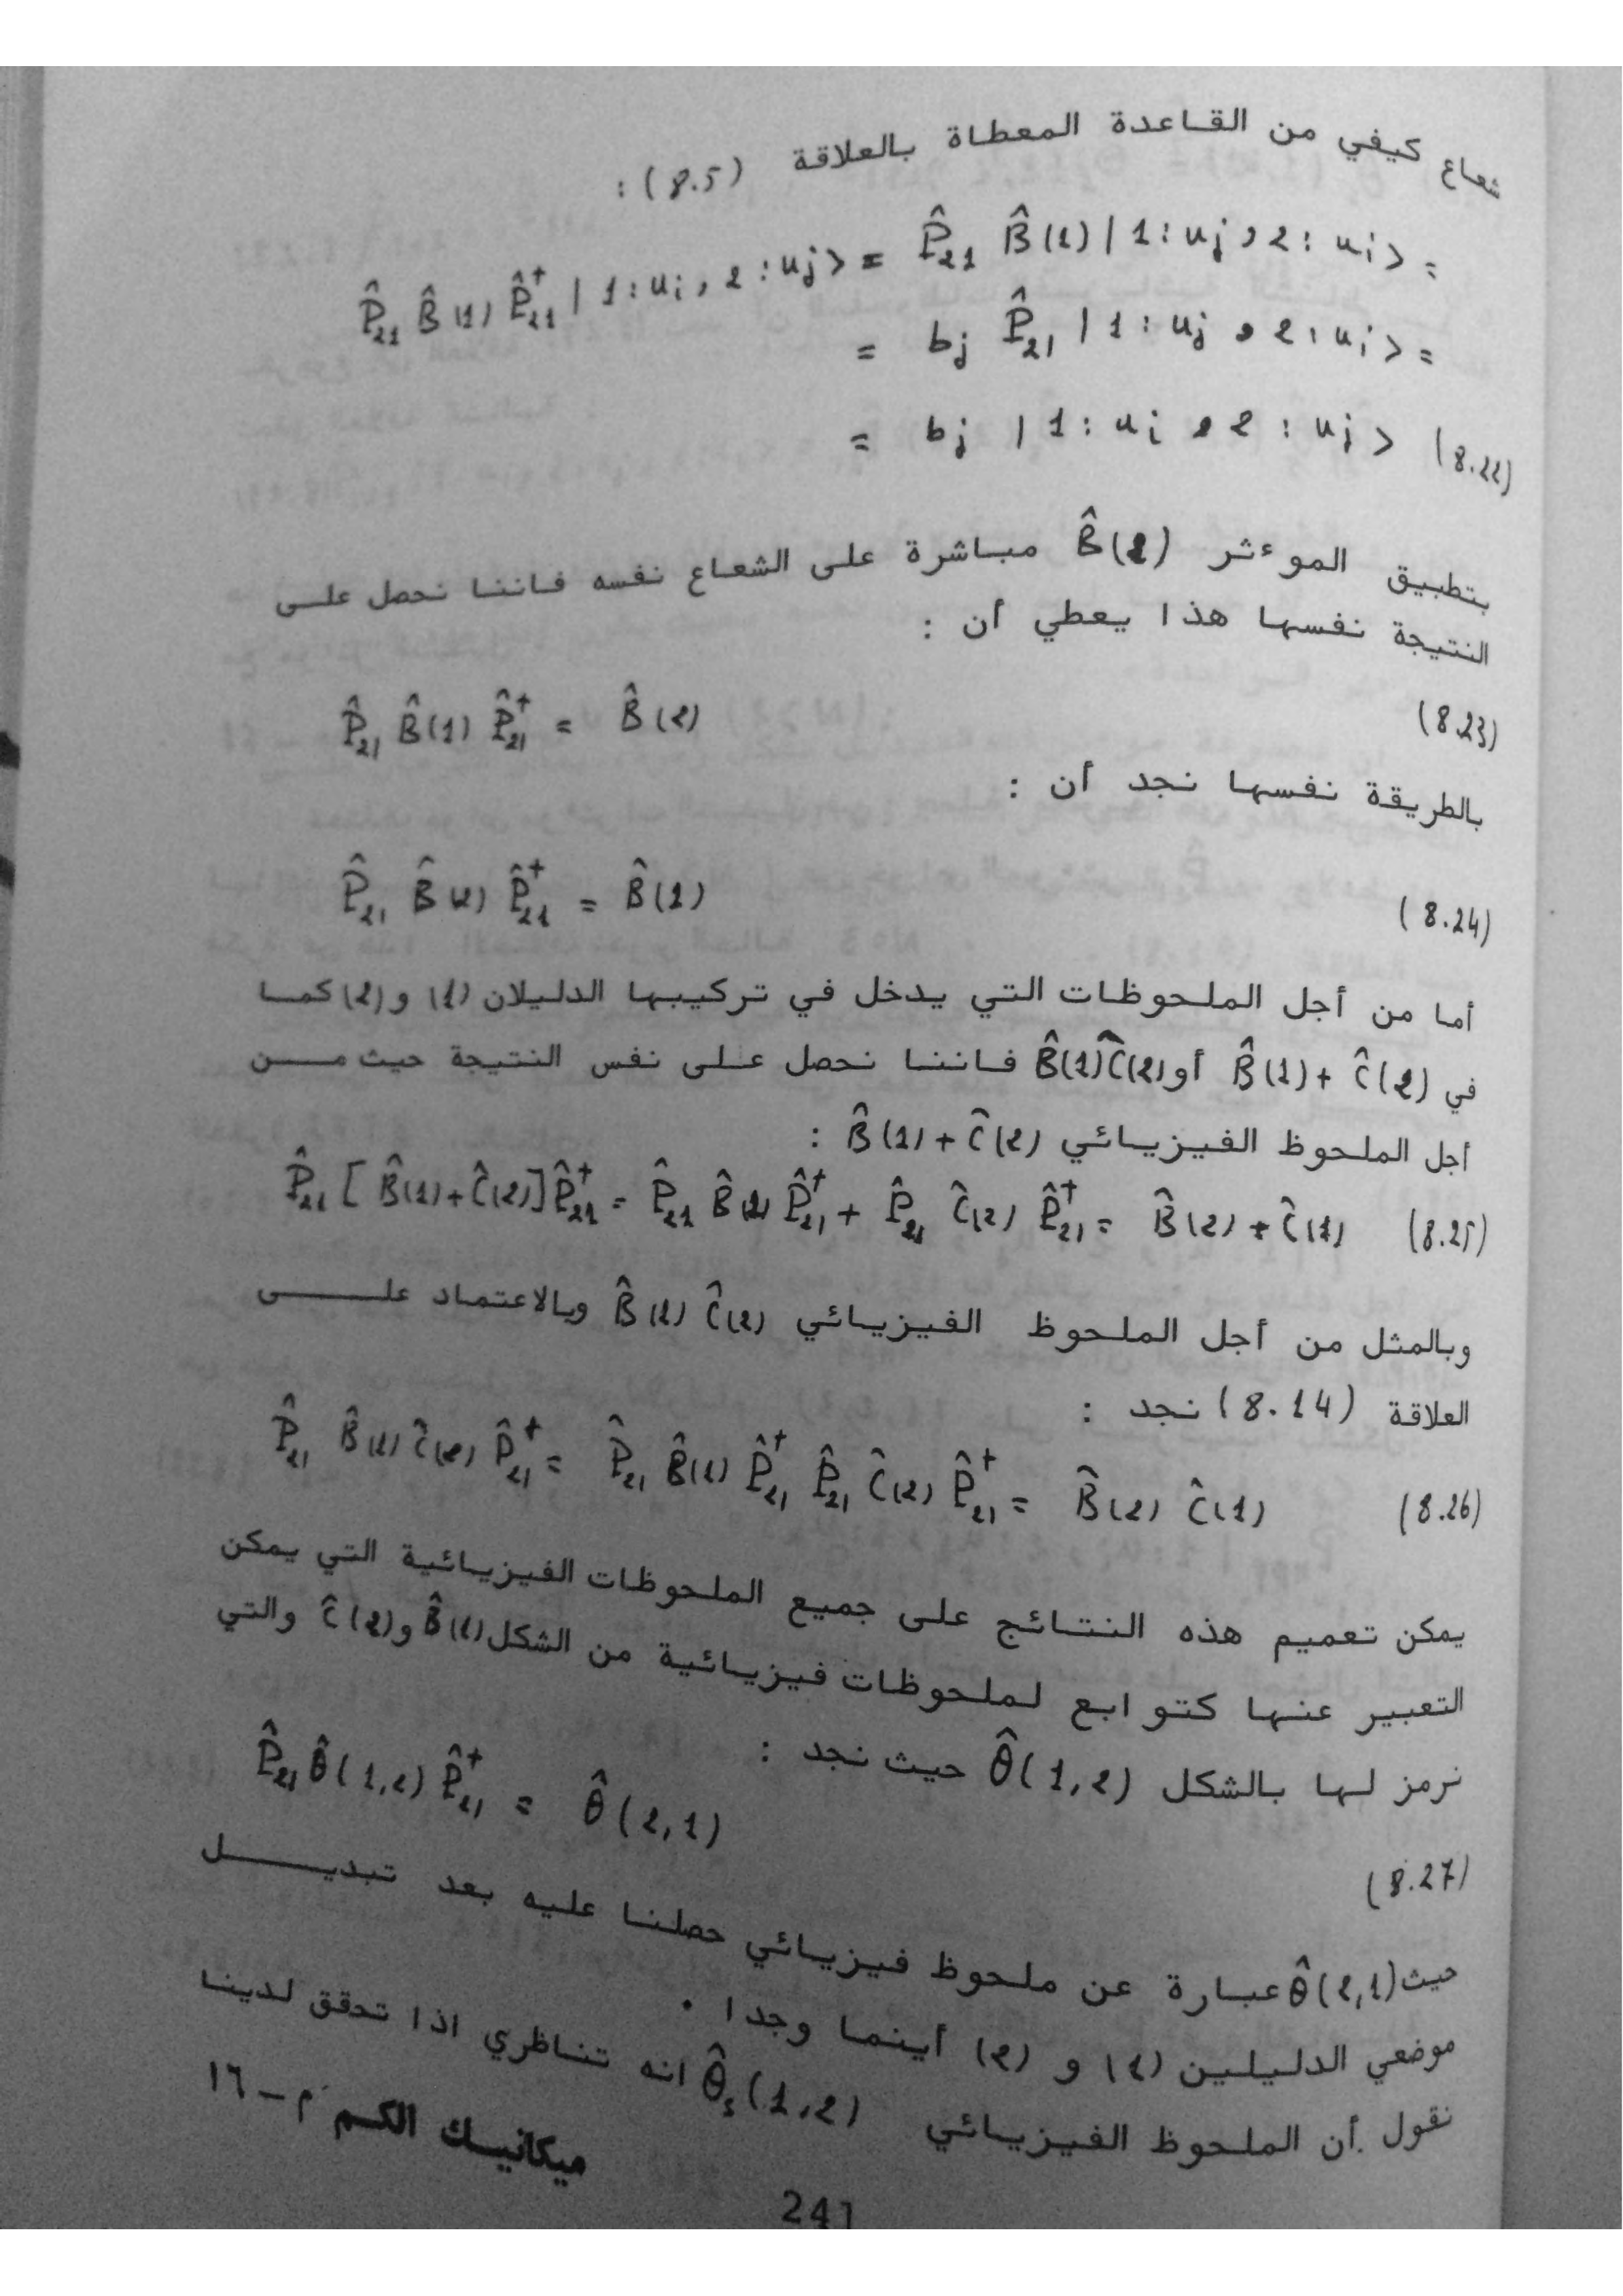 شعاع كيفي من القاعدة المعطاة بالعلاقة (8.5) :
P̂₂₁ B̂(1) P̂₂₁† | 1 : uᵢ , 2 : uⱼ > = P̂₂₁ B̂(1) | 1 : uⱼ , 2 : uᵢ > =
= bⱼ P̂₂₁ | 1 : uⱼ , 2 : uᵢ > =
= bⱼ | 1 : uᵢ , 2 : uⱼ > (8.22)
بتطبيق الموءثر B̂(2) مباشرة على الشعاع نفسه فاننا نحصل على
النتيجة نفسها هذا يعطي أن :
P̂₂₁ B̂(1) P̂₂₁† = B̂(2) (8.23)
بالطريقة نفسها نجد أن :
P̂₂₁ B̂(2) P̂₂₁† = B̂(1) (8.24)
أما من أجل الملحوظات التي يدخل في تركيبها الدليلان (1) و (2) كما
في B̂(1) + Ĉ(2) أو B̂(1)Ĉ(2) فاننا نحصل على نفس النتيجة حيث من
أجل الملحوظ الفيزيائي B̂(1) + Ĉ(2) :
P̂₂₁ [ B̂(1) + Ĉ(2) ] P̂₂₁† = P̂₂₁ B̂(1) P̂₂₁† + P̂₂₁ Ĉ(2) P̂₂₁† = B̂(2) + Ĉ(1) (8.25)
وبالمثل من أجل الملحوظ الفيزيائي B̂(1) Ĉ(2) وبالاعتماد على
العلاقة (8.14) نجد :
P̂₂₁ B̂(1) Ĉ(2) P̂₂₁† = P̂₂₁ B̂(1) P̂₂₁† P̂₂₁ Ĉ(2) P̂₂₁† = B̂(2) Ĉ(1) (8.26)
يمكن تعميم هذه النتائج على جميع الملحوظات الفيزيائية التي يمكن
التعبير عنها كتوابع لملحوظات فيزيائية من الشكل B̂(1) و Ĉ(2) والتي
نرمز لها بالشكل θ̂(1,2) حيث نجد :
P̂₂₁ θ̂(1,2) P̂₂₁† = θ̂(2,1)
(8.27)
حيث θ̂(2,1) عبارة عن ملحوظ فيزيائي حصلنا عليه بعد تبديل
موضعي الدليلين (1) و (2) أينما وجدا .
نقول أن الملحوظ الفيزيائي θ̂ₛ(1,2) انه تناظري اذا تحقق لدينا
ميكانيك الكم م - ١٦
241